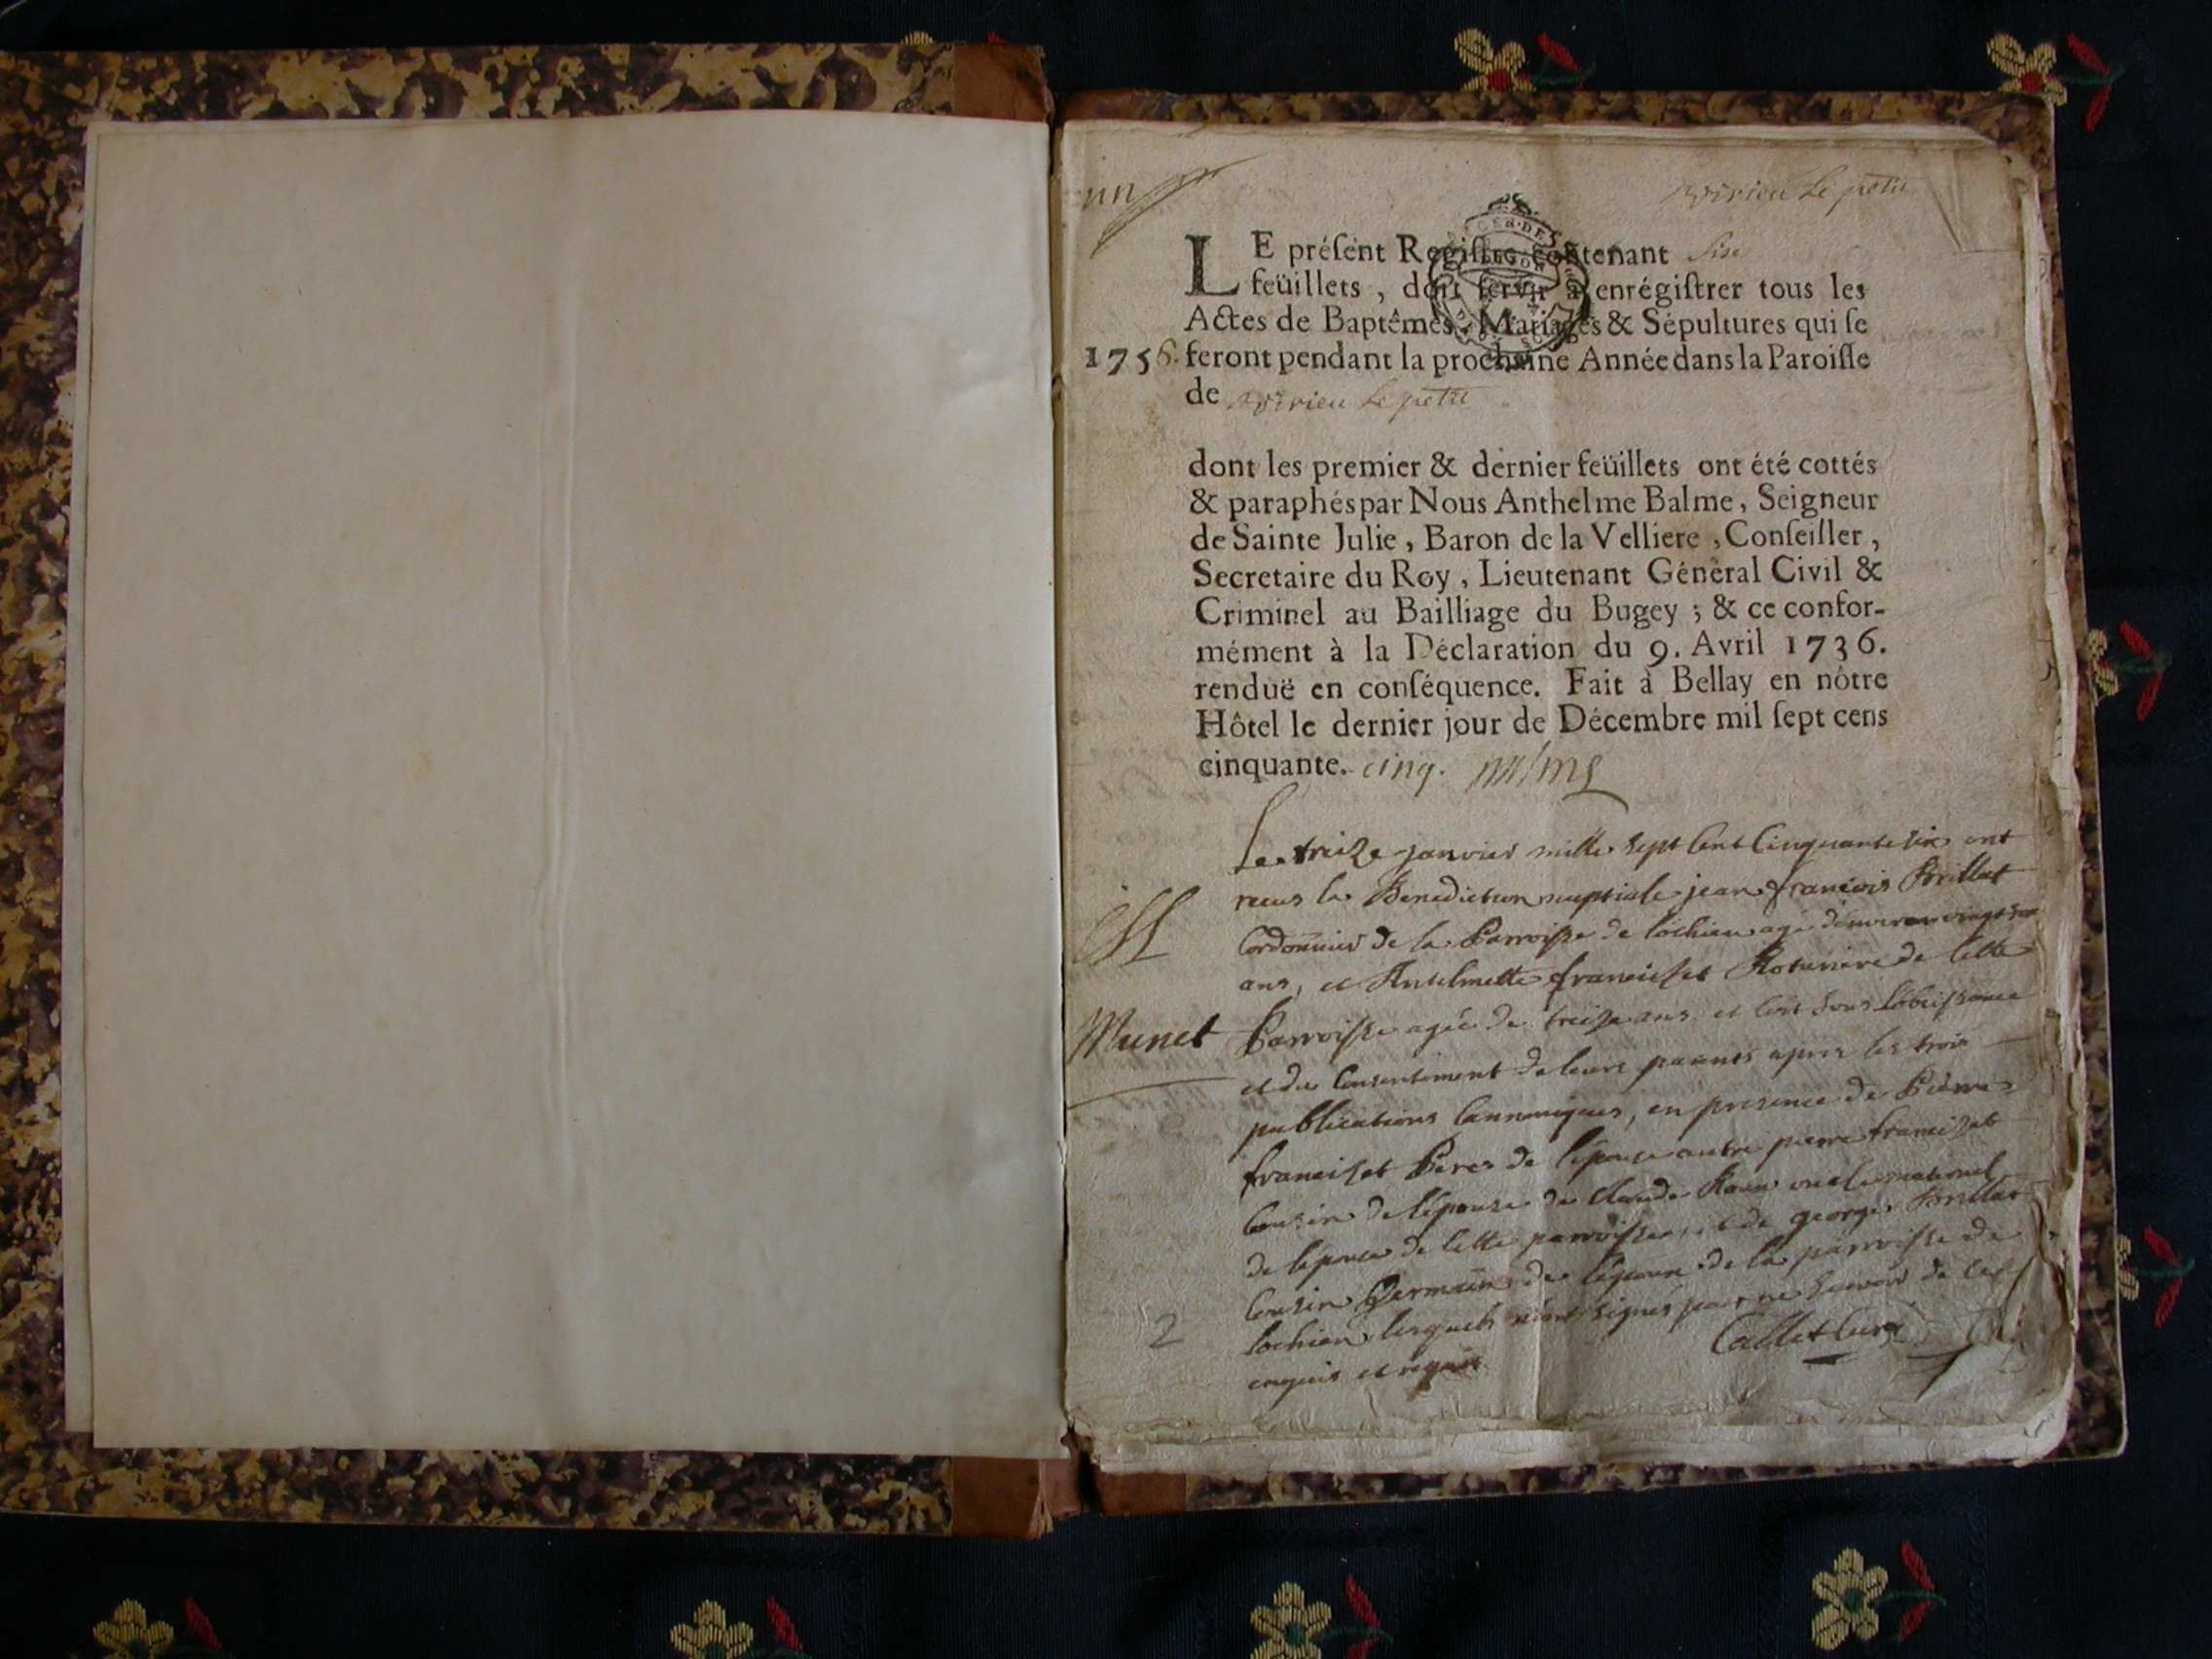 un
Virieu Le petit
LE préſent Regiſtre contenant Sise
feüillets, doit ſervir à enrégiſtrer tous les
Actes de Baptêmes, Mariages & Sépultures qui ſe
1756. feront pendant la prochaine Année dans la Paroiſſe
de Virieu Le petit
dont les premier & dernier feüillets ont été cottés
& paraphés par Nous Anthelme Balme, Seigneur
de Sainte Julie, Baron de la Velliere, Conſeiller,
Secretaire du Roy, Lieutenant Général Civil &
Criminel au Bailliage du Bugey; & ce confor-
mément à la Déclaration du 9. Avril 1736.
renduë en conſéquence. Fait à Bellay en nôtre
Hôtel le dernier jour de Décembre mil ſept cens
cinquante. cinq.
Le treize janvier mille sept cent cinquante six ont
recus la Benediction nuptiale jean françois Brillat
Cordonnier de la Parroisse de lochieu agé d'environ vingt
ans, et Anthelmette francillet de cette
Munet Parroisse agée de treize ans et sous l'obeissance
et du consentement de leurs parents apres les trois
publications cannoniques, en presence de Pierre
francillet Peres de l'épouse autre pierre francillet
Cousin de l'épouse de Claude oncle maternel
de lepouse de cette parroisse, et de george Brillat
Cousin Germain de l'époux de la parroisse de
2 lochieu lesquels n'ont signés pour ne savoir de ce
enquis et requis Callet Curé